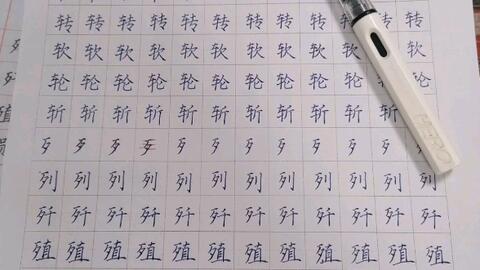 转 转 转 转 转 转 转 转 转 转 转
软 软 软 软 软 软 软 软 软 软 软
轮 轮 轮 轮 轮 轮 轮 轮 轮 轮 轮
斩 斩 斩 斩 斩 斩 斩 斩 斩 斩 斩
歹 歹 歹 歹 歹 歹 歹 歹 歹 歹 歹 歹
列 列 列 列 列 列 列 列 列 列 列 列
歼 歼 歼 歼 歼 歼 歼 歼 歼 歼 歼 歼
殖 殖 殖 殖 殖 殖 殖 殖 殖 殖 殖 殖